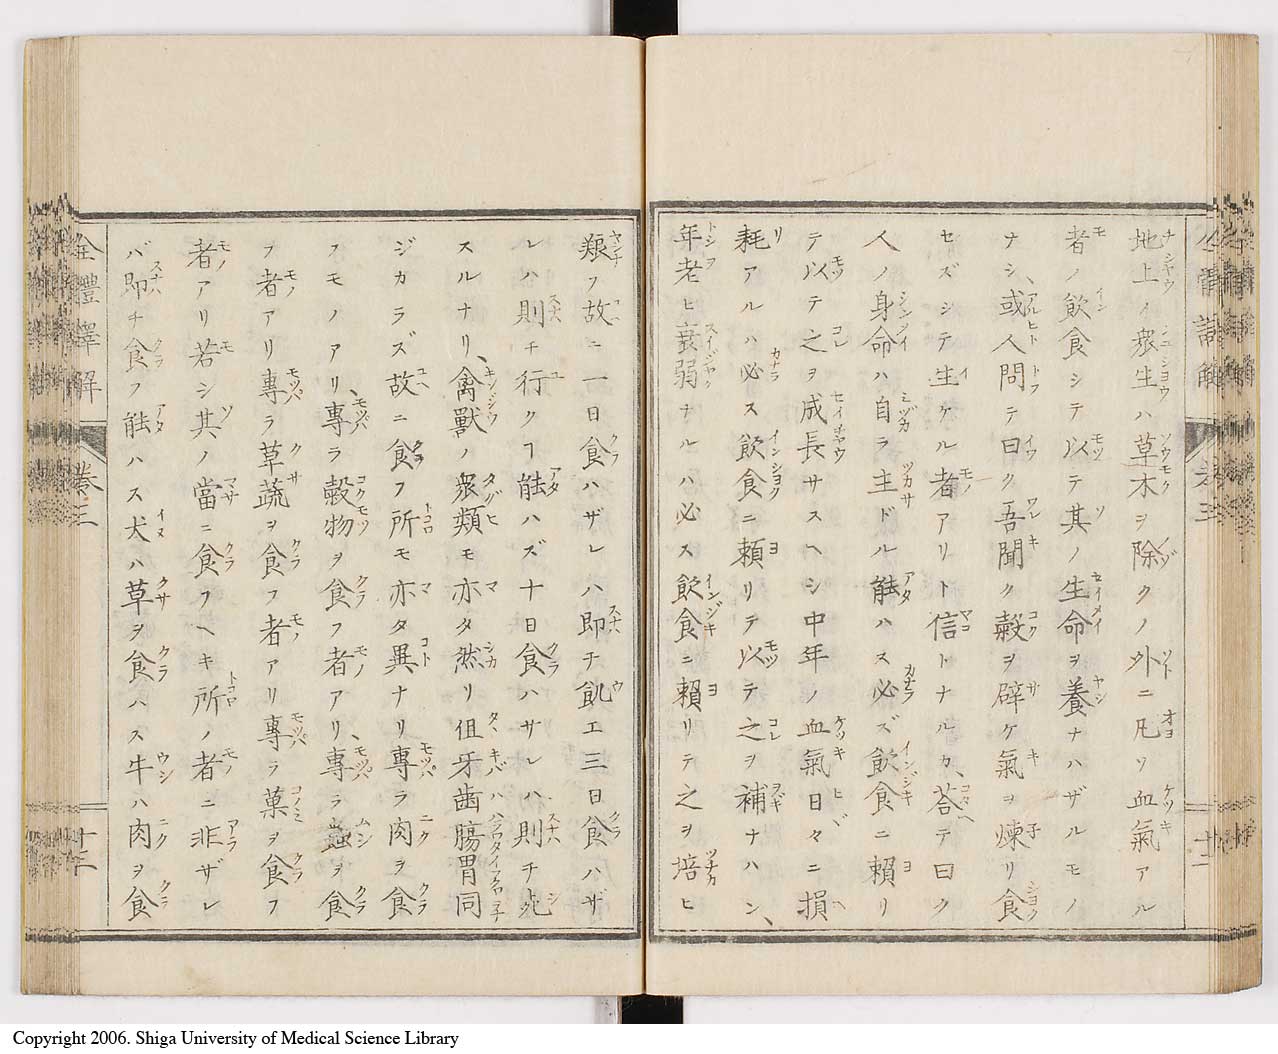 地上ノ衆生ハ草木ヲ除クノ外ニ凡ソ血氣アル
者ノ飮食シテ以テ其ノ生命ヲ養ナハザルモノ
ナシ、或人問テ曰ク吾聞ク穀ヲ辟ケ氣ヲ煉リ食
セズシテ生ケル者アリト信トナルカ、荅テ曰ク
人ノ身命ハ自ラ主ドル能ハス必ズ飮食ニ賴リ
テ以テ之ヲ成長サスヘシ中年ノ血氣日々ニ損
耗アルハ必ス飮食ニ賴リテ以テ之ヲ補ナハン、
年老ヒ衰弱ナルハ必ス飮食ニ賴リテ之ヲ培ヒ
艱フ故ニ一日食ハザレハ即チ飢エ三日食ハザ
レハ則チ行クヿ能ハズ十日食ハサレハ則チ死
スルナリ、禽獸ノ衆類モ亦タ然リ但牙歯腸胃同
ジカラズ故ニ食フ所モ亦タ異ナリ專ラ肉ヲ食
フモノアリ、專ラ穀物ヲ食フ者アリ、專ラ蟲ヲ食
フ者アリ專ラ草蔬ヲ食フ者アリ專ラ菓ヲ食フ
者アリ若シ其ノ當ニ食フヘキ所ノ者ニ非ザレ
バ即チ食フ能ハス犬ハ草ヲ食ハス牛ハ肉ヲ食
全體譯解
卷三
十二
Copyright 2006. Shiga University of Medical Science Library